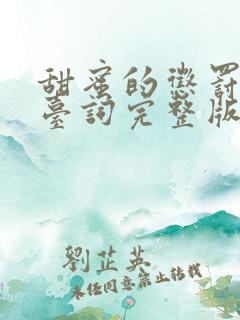 甜蜜的懲罰
臺詞完整版
劉芷英
未经同意禁止转载